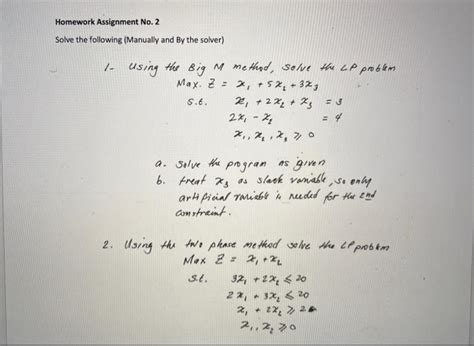 Homework Assignment No. 2
Solve the following (Manually and By the solver)
1- Using the Big M method, solve the LP problem
Max. Z = x₁ + 5x₂ + 3x₃
S.t. x₁ + 2x₂ + x₃ = 3
2x₁ - x₂ = 4
x₁, x₂, x₃ ≥ 0
a. Solve the program as given
b. treat x₃ as slack variable, so only
artificial variable is needed for the 2nd
constraint.
2. Using the two phase method solve the LP problem
Max Z = x₁ + x₂
S.t. 3x₁ + 2x₂ ≤ 20
2x₁ + 3x₂ ≤ 20
x₁ + 2x₂ ≥ 2
x₁, x₂ ≥ 0